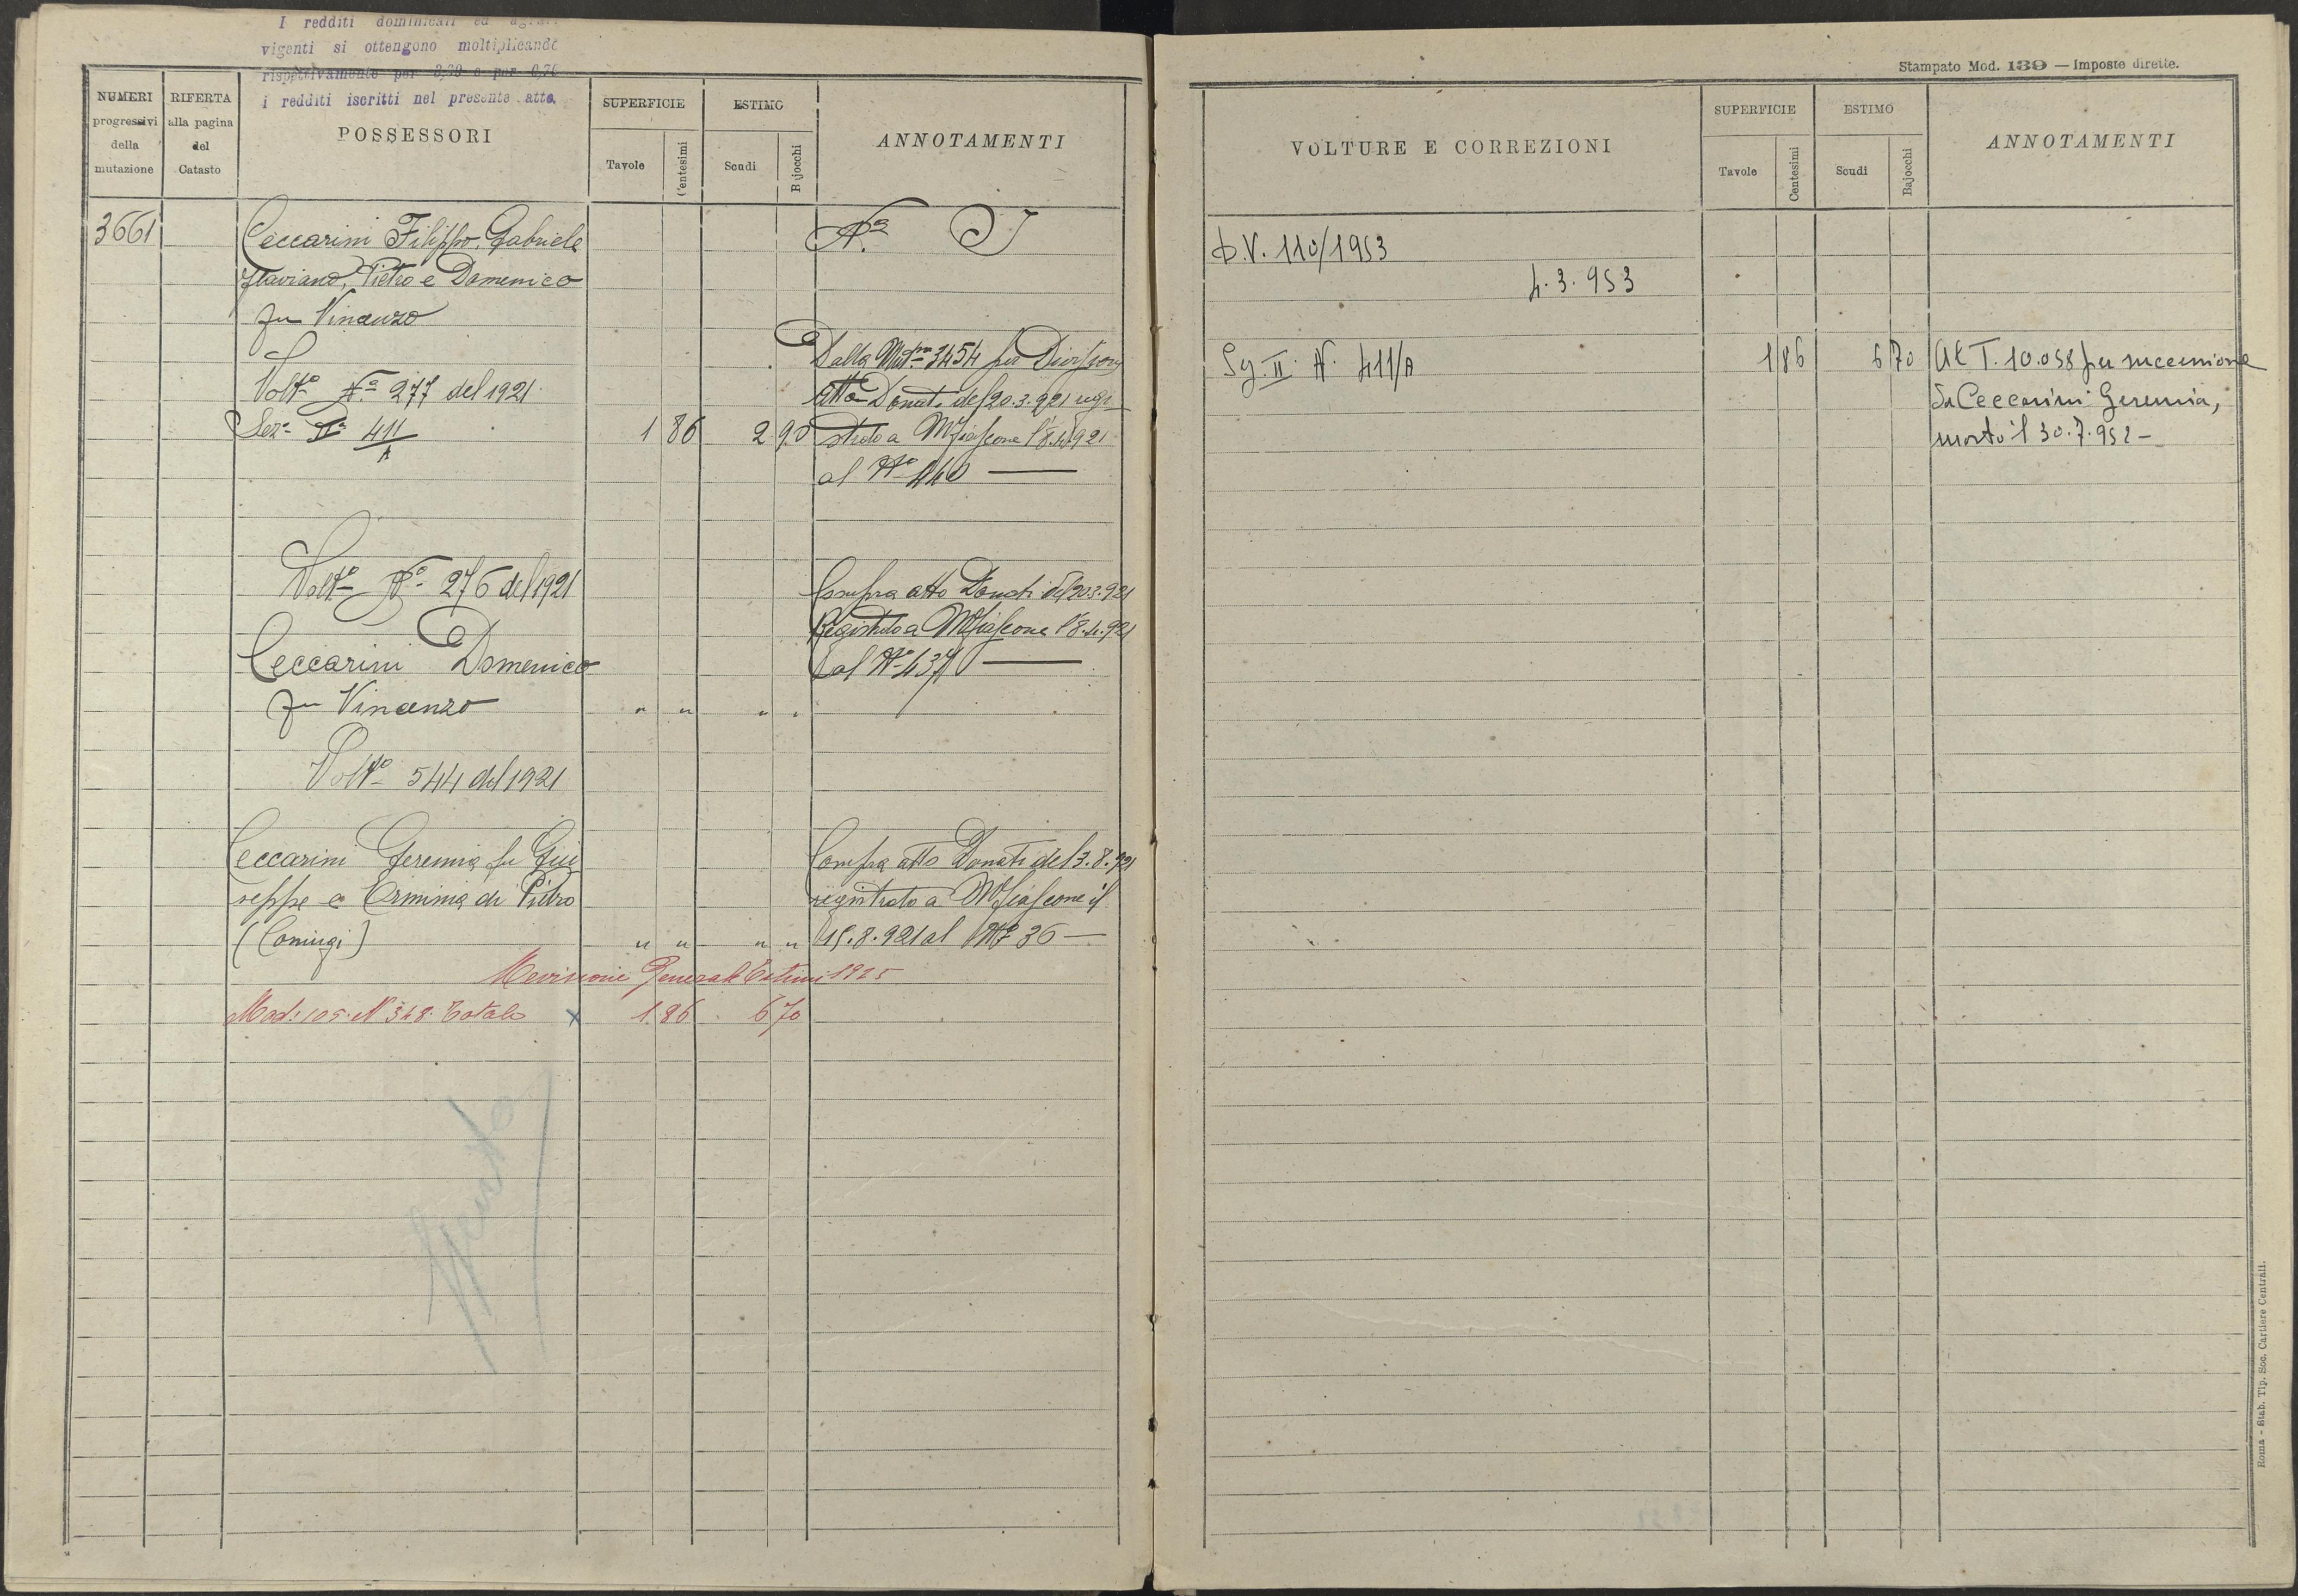 I redditi dominicali ed
vigenti si ottengono moltiplicando
rispettivamente per
i redditi iscritti nel presente atto.
NUMERI progressivi della mutazione
RIFERTA alla pagina del Catasto
POSSESSORI
SUPERFICIE
Tavole
Centesimi
ESTIMO
Scudi
Bajocchi
ANNOTAMENTI
3661
Ceccarini Filippo, Gabriele
Flaviano, Pietro e Domenico
fu Vincenzo
Volt.a N.o 277 del 1921
Sez.e II.a 411/A
1 86 2 90
Dalla Mat.ra 3454 per Divisione
Atto Donati del 20.3.921 regi
strato a Mfiascone l'8.4.921
al N.o 440 —
Volt.a N.o 276 del 1921
Ceccarini Domenico
fu Vincenzo " " " "
Compra atto Donati del 20.3.921
Registrato a Mfiascone l'8.4.921
al N.o 437 —
Volt.a 544 del 1921
Ceccarini Geremia fu Giu
seppe e Erminia di Pietro
(Coniugi) " " " "
Compra atto Donati del 3.8.921
registrato a Mfiascone il
15.8.921 al N.o 36 —
Revisione Generale Estimi 1925
Mod. 105. N. 348. Totale x 1 86 6 70
Stampato Mod. 139 — Imposte dirette.
VOLTURE E CORREZIONI
SUPERFICIE
Tavole
Centesimi
ESTIMO
Scudi
Bajocchi
ANNOTAMENTI
D.V. 110/1953
4.3.953
Sez. II. N. 411/A 1 86 6 70
At T. 10.058 per successione
Da Ceccarini Geremia,
morto il 30.7.952 –
Roma - Stab. Tip. Soc. Cartiere Centrali.